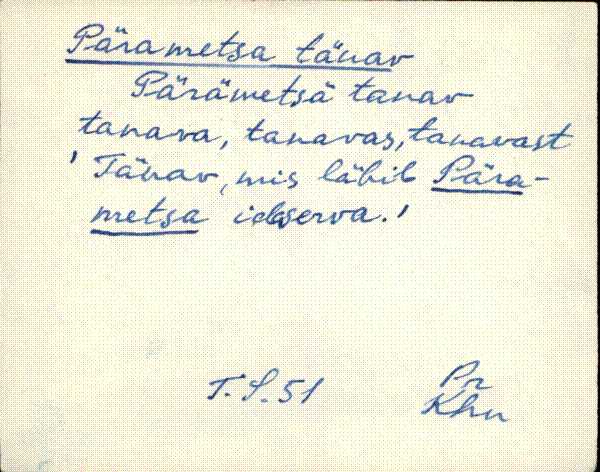 Pärametsa tänav
Pärämetsä tanav
tanava, tanavas, tanavast
'Tänav, mis läbib Pära-
metsa idaserva.'
T.S.51
Pr
Khn